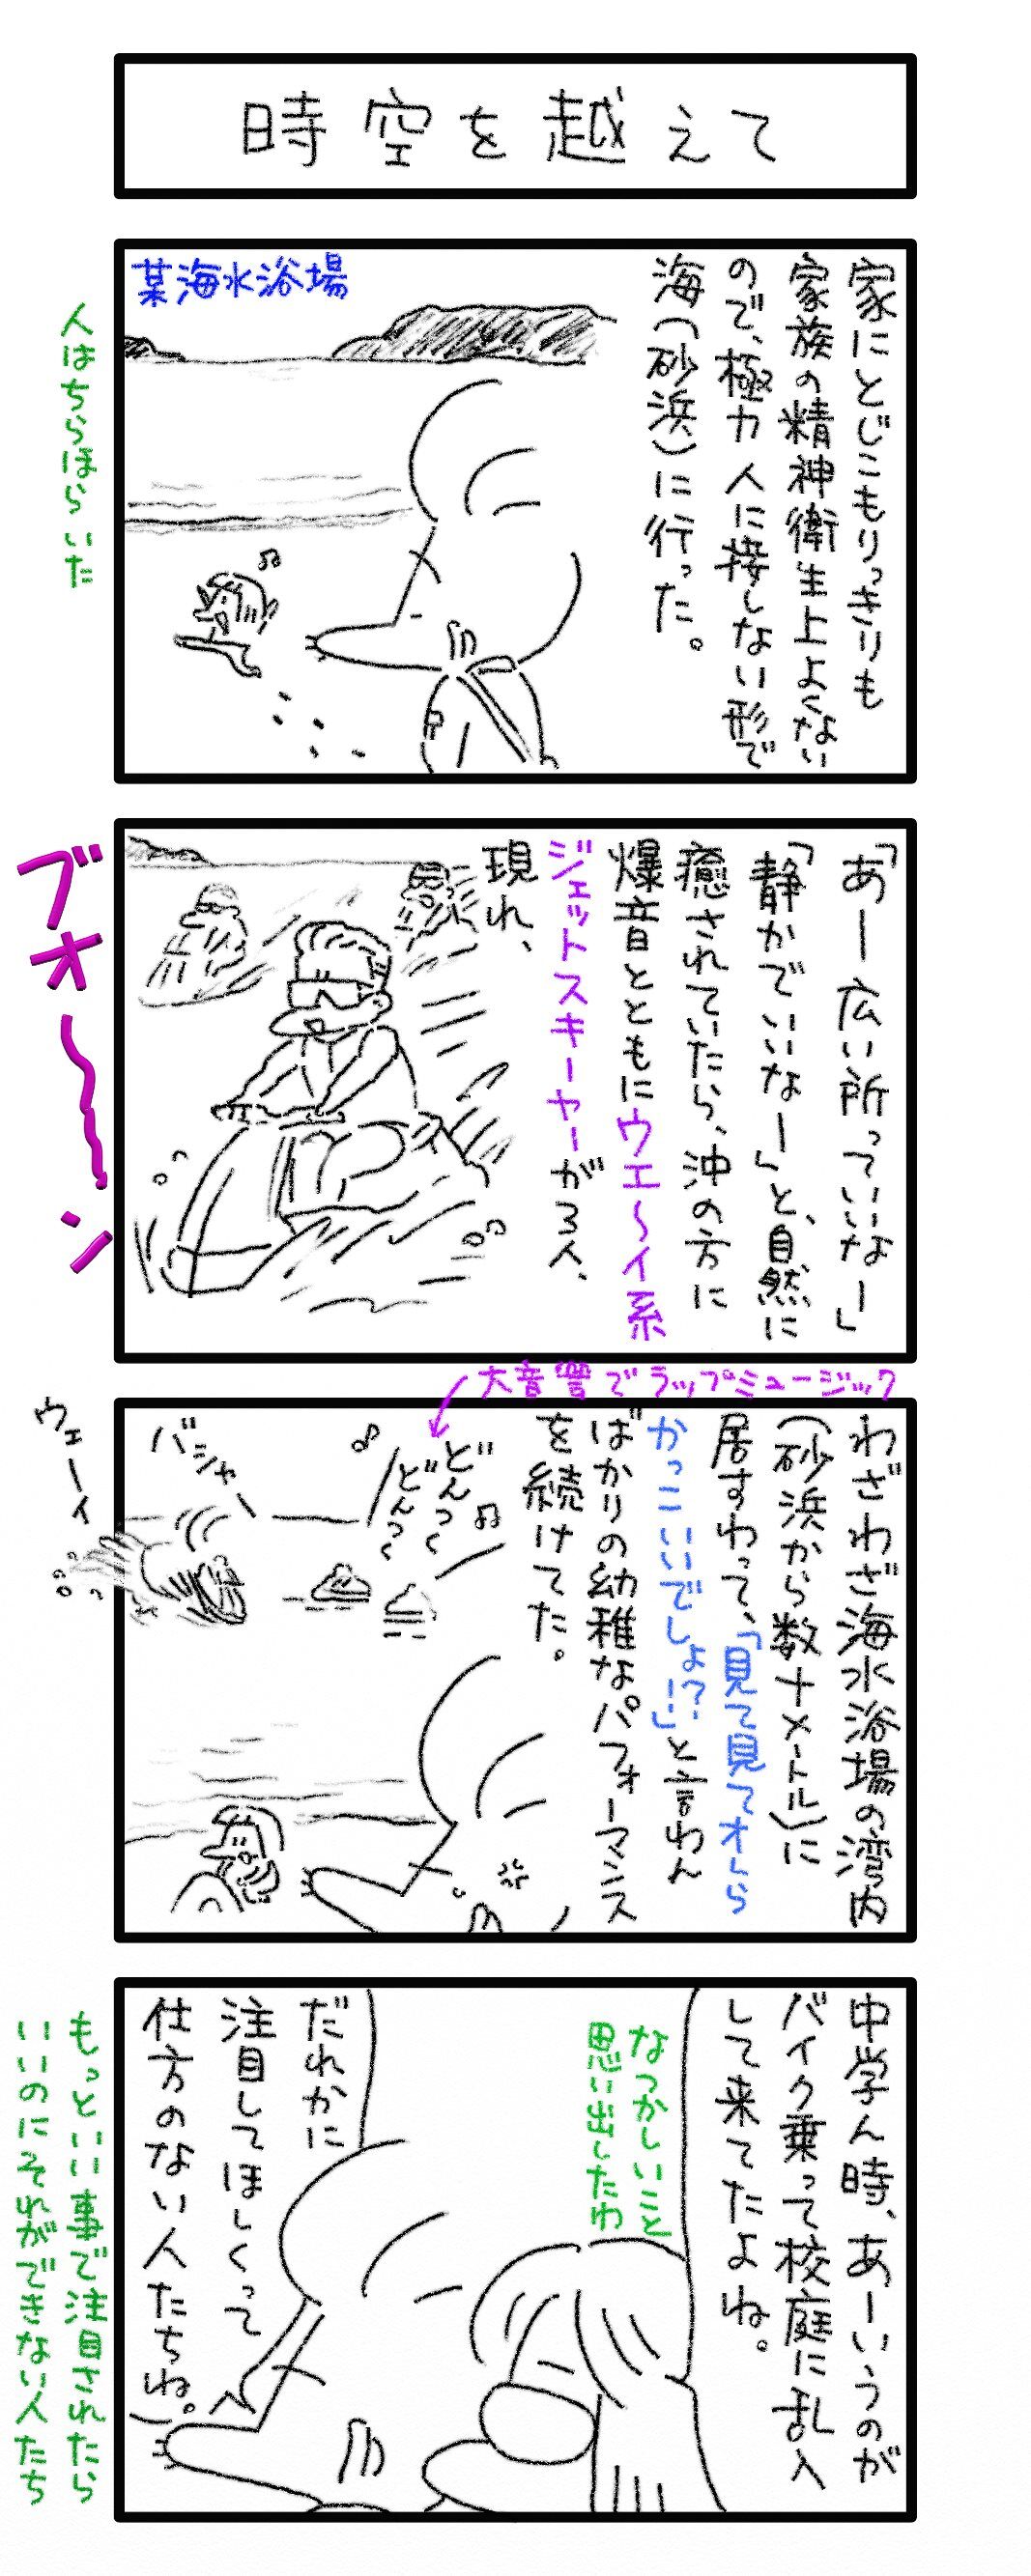 時空を越えて
家にとじこもりっきりも
家族の精神衛生上よくない
ので、極力人に接しない形で
海(砂浜)に行った。
某海水浴場
人はちらほらいた
「あー広い所っていいなー」
「静かでいいなー」と、自然に
癒されていたら、沖の方に
爆音とともにウエ〜イ系
ジェットスキーヤーが3人、
現れ、
ブオ〜ン
大音響でラップミュージック
わざわざ海水浴場の湾内
(砂浜から数十メートル)に
居すわって、「見て見てオレら
かっこいいでしょ?!」と言わん
ばかりの幼稚なパフォーマンス
を続けてた。
どんつく
どんつく
バシャー
ウェーイ
中学ん時、あーいうのが
バイク乗って校庭に乱入
して来てたよね。
なつかしいこと
思い出したわ
だれかに
注目してほしくって
仕方のない人たちね。」
もっといい事で注目されたら
いいのにそれができない人たち